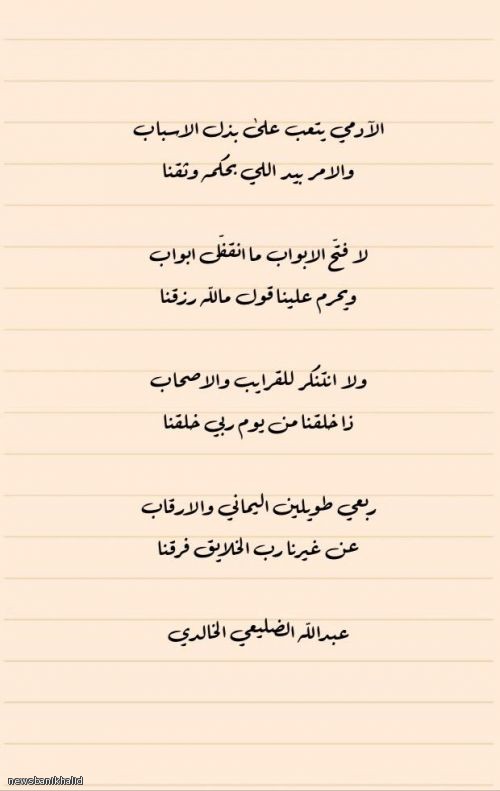 الآدمي يتعب على بذل الاسباب
والامر بيد اللي بحكمه وثقنا
لا فتّح الابواب ما انقفّل ابواب
ويحرم علينا قول مالله رزقنا
ولا انتنكر للقرايب والاصحاب
ذا خلقنا من يوم ربي خلقنا
ربعي طويلين اليماني والارقاب
عن غيرنا رب الخلايق فرقنا
عبدالله الضليعي الخالدي
newsbanikhalid